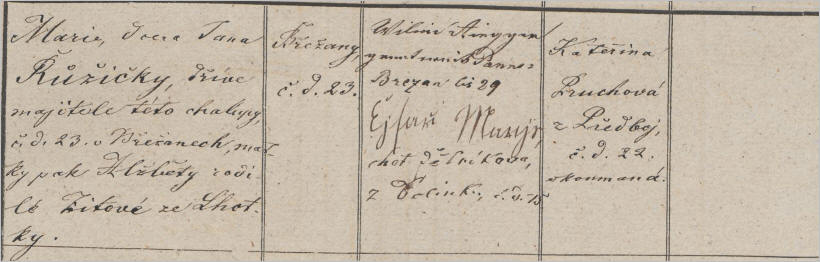 Marie, dcera Jana
Růžičky, dříve
majitele této chalupy,
č. d. 23. v Břežanech, mat-
ky pak Alžběty rozi-
lé Zitové ze Lhot-
ky.
Břežany,
č. d. 23.
Panna
Brezan čís 29
Marije,
choť dělníkova,
z č. d. 15
Kateřina
Pruchová
z Předboj,
č. d. 22.
zkoumaná.